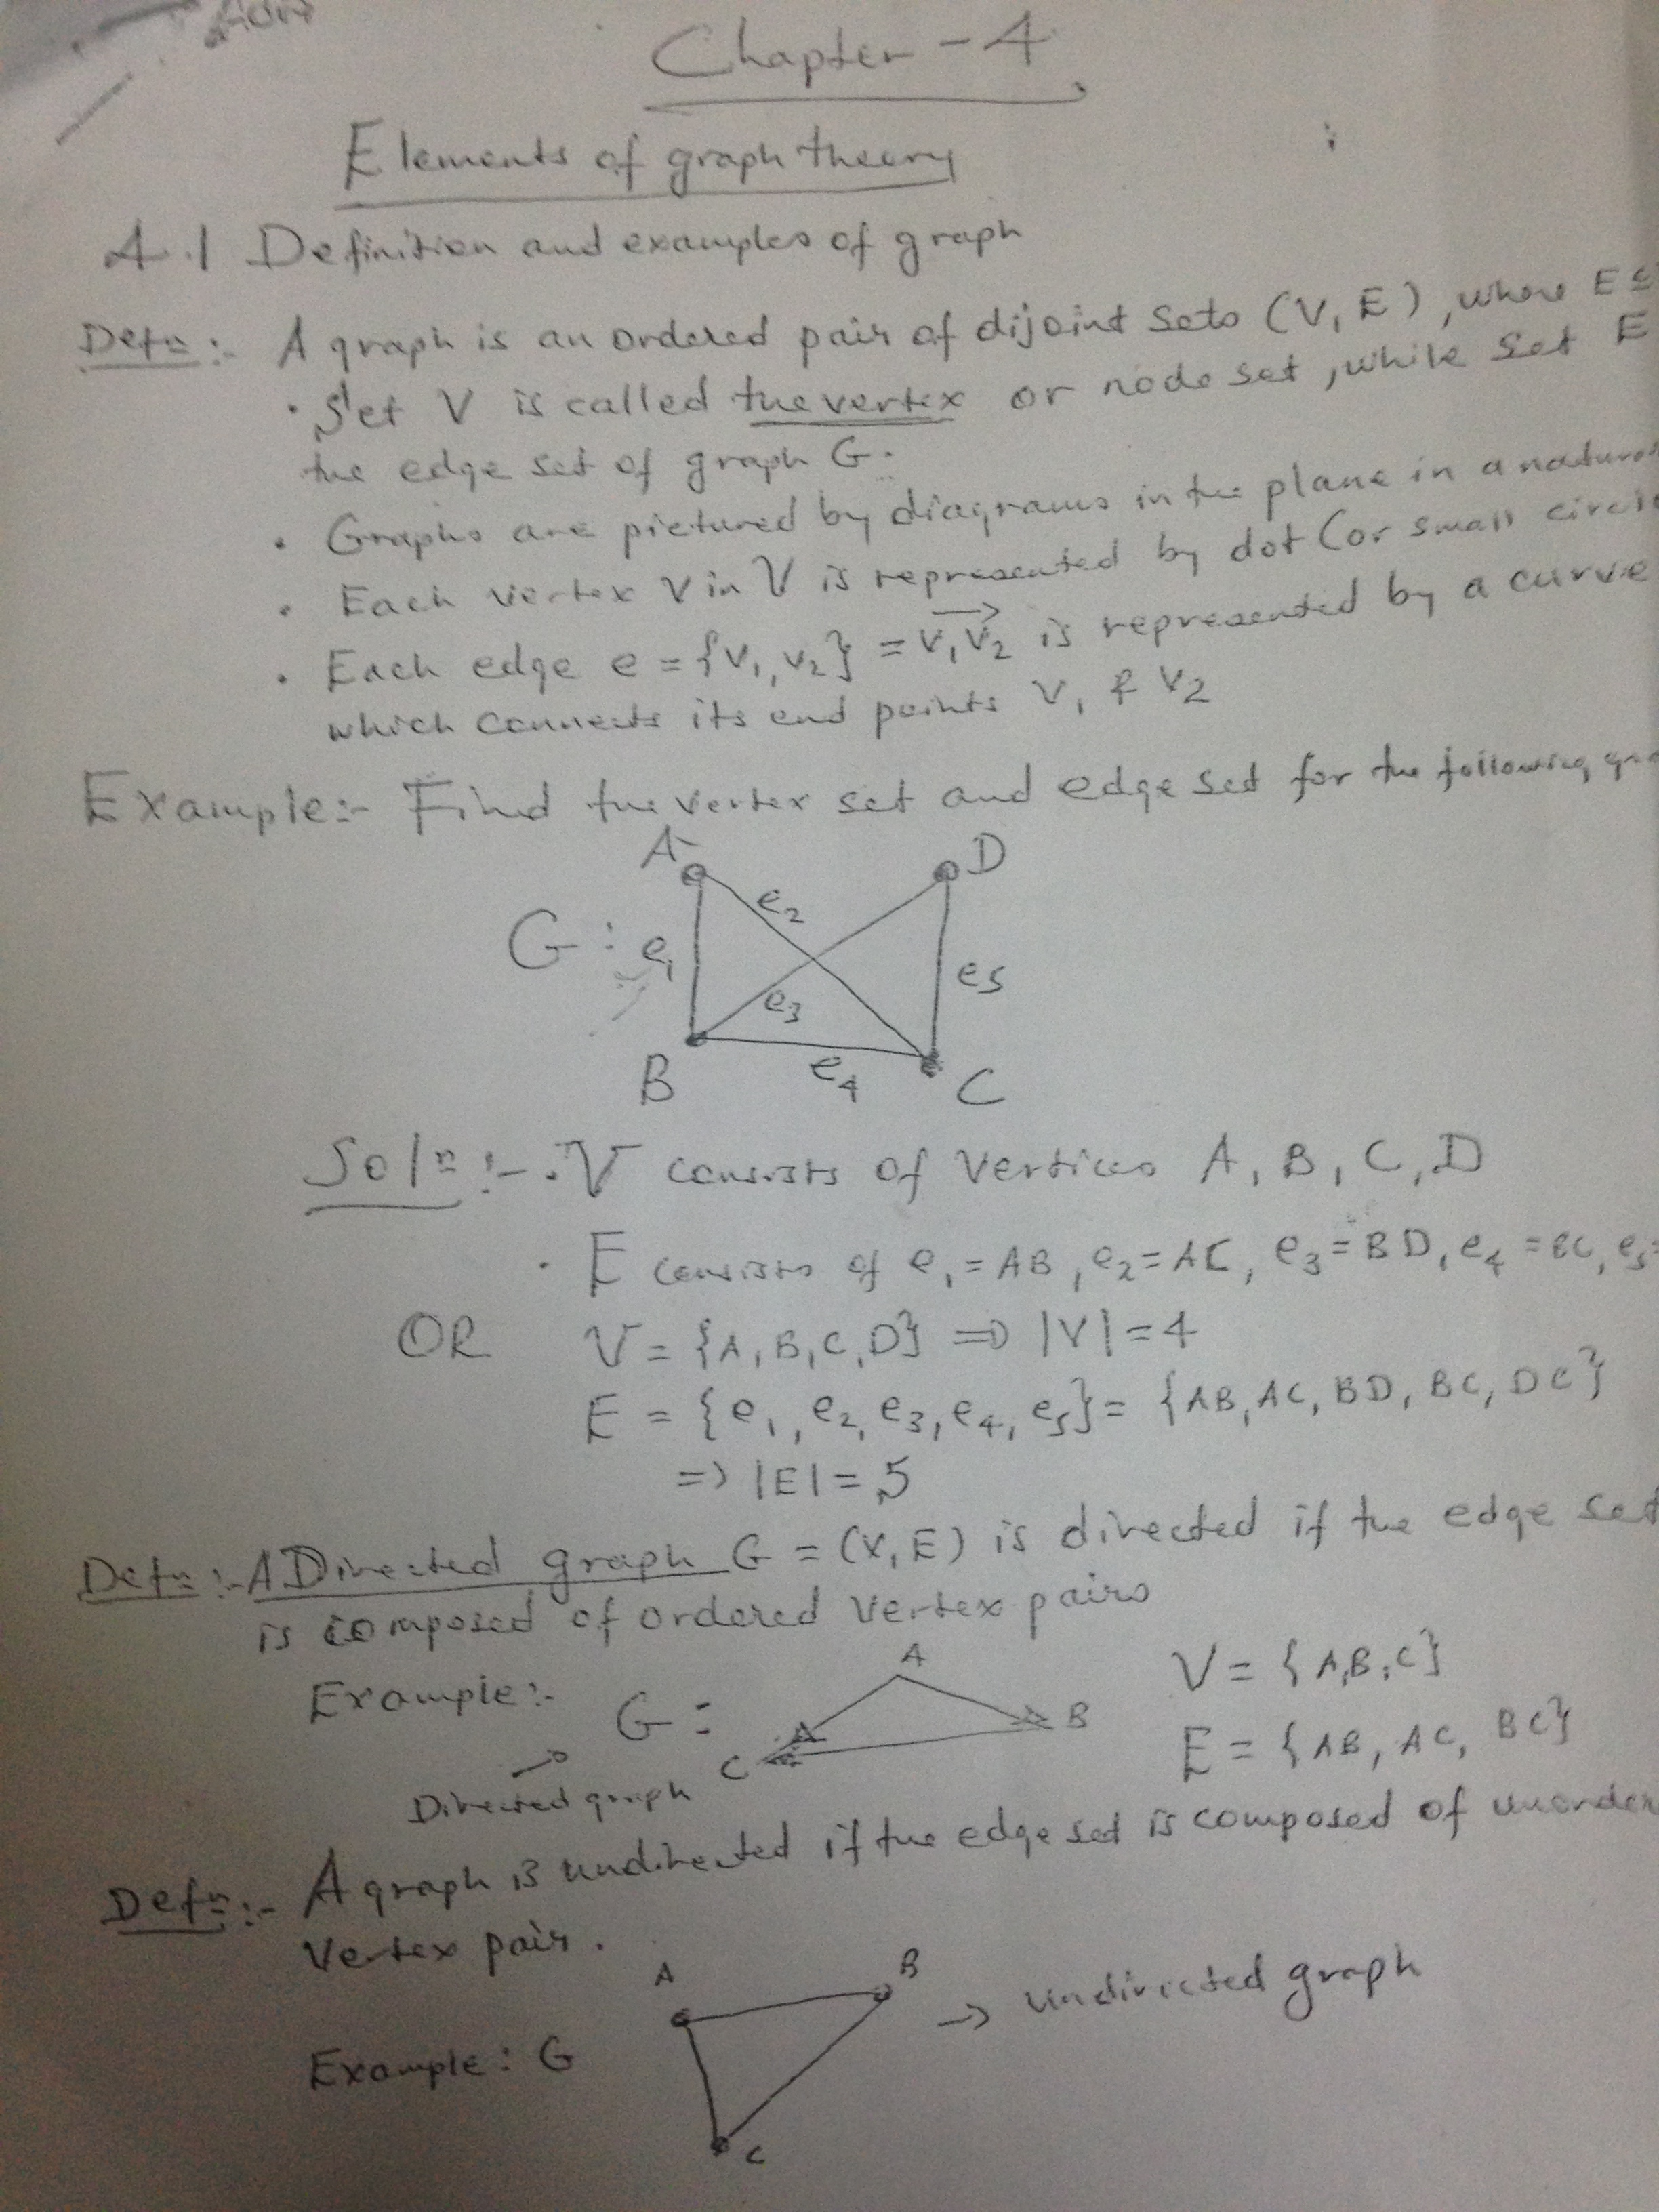 Chapter - 4
Elements of graph theory
4.1 Definition and examples of graph
Defn:- A graph is an ordered pair of dijoint sets (V, E), where E ⊆
· Set V is called the vertex or node set, while set E
the edge set of graph G.
· Graphs are pictured by diagrams in the plane in a natural
· Each vertex v in V is represented by dot (or small circle
· Each edge e = {v₁, v₂} = v₁v₂ is represented by a curve
which connects its end points v₁ & v₂
Example:- Find the vertex set and edge set for the following
A D
e₂
G: e₁ e₅
e₃
B e₄ C
Soln:- · V consists of vertices A, B, C, D
· E consists of e₁ = AB, e₂ = AC, e₃ = BD, e₄ = BC, e₅ =
OR V = {A, B, C, D} => |V| = 4
E = {e₁, e₂, e₃, e₄, e₅} = {AB, AC, BD, BC, DC}
=> |E| = 5
Defn:- A Directed graph G = (V, E) is directed if the edge set
is composed of ordered vertex pairs
Example:- G: A B C V = {A, B, C}
E = {AB, AC, BC}
Directed graph
Defn:- A graph is undirected if the edge set is composed of unorder
vertex pair.
A B → undirected graph
Example: G
C